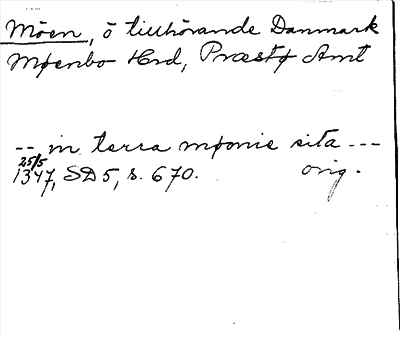 Möen, ö tillhörande Danmark
Mønbo Hrd, Præstø Amt
-- in terra mønie sita ---
25/5
1347, SD 5, s. 670. orig.